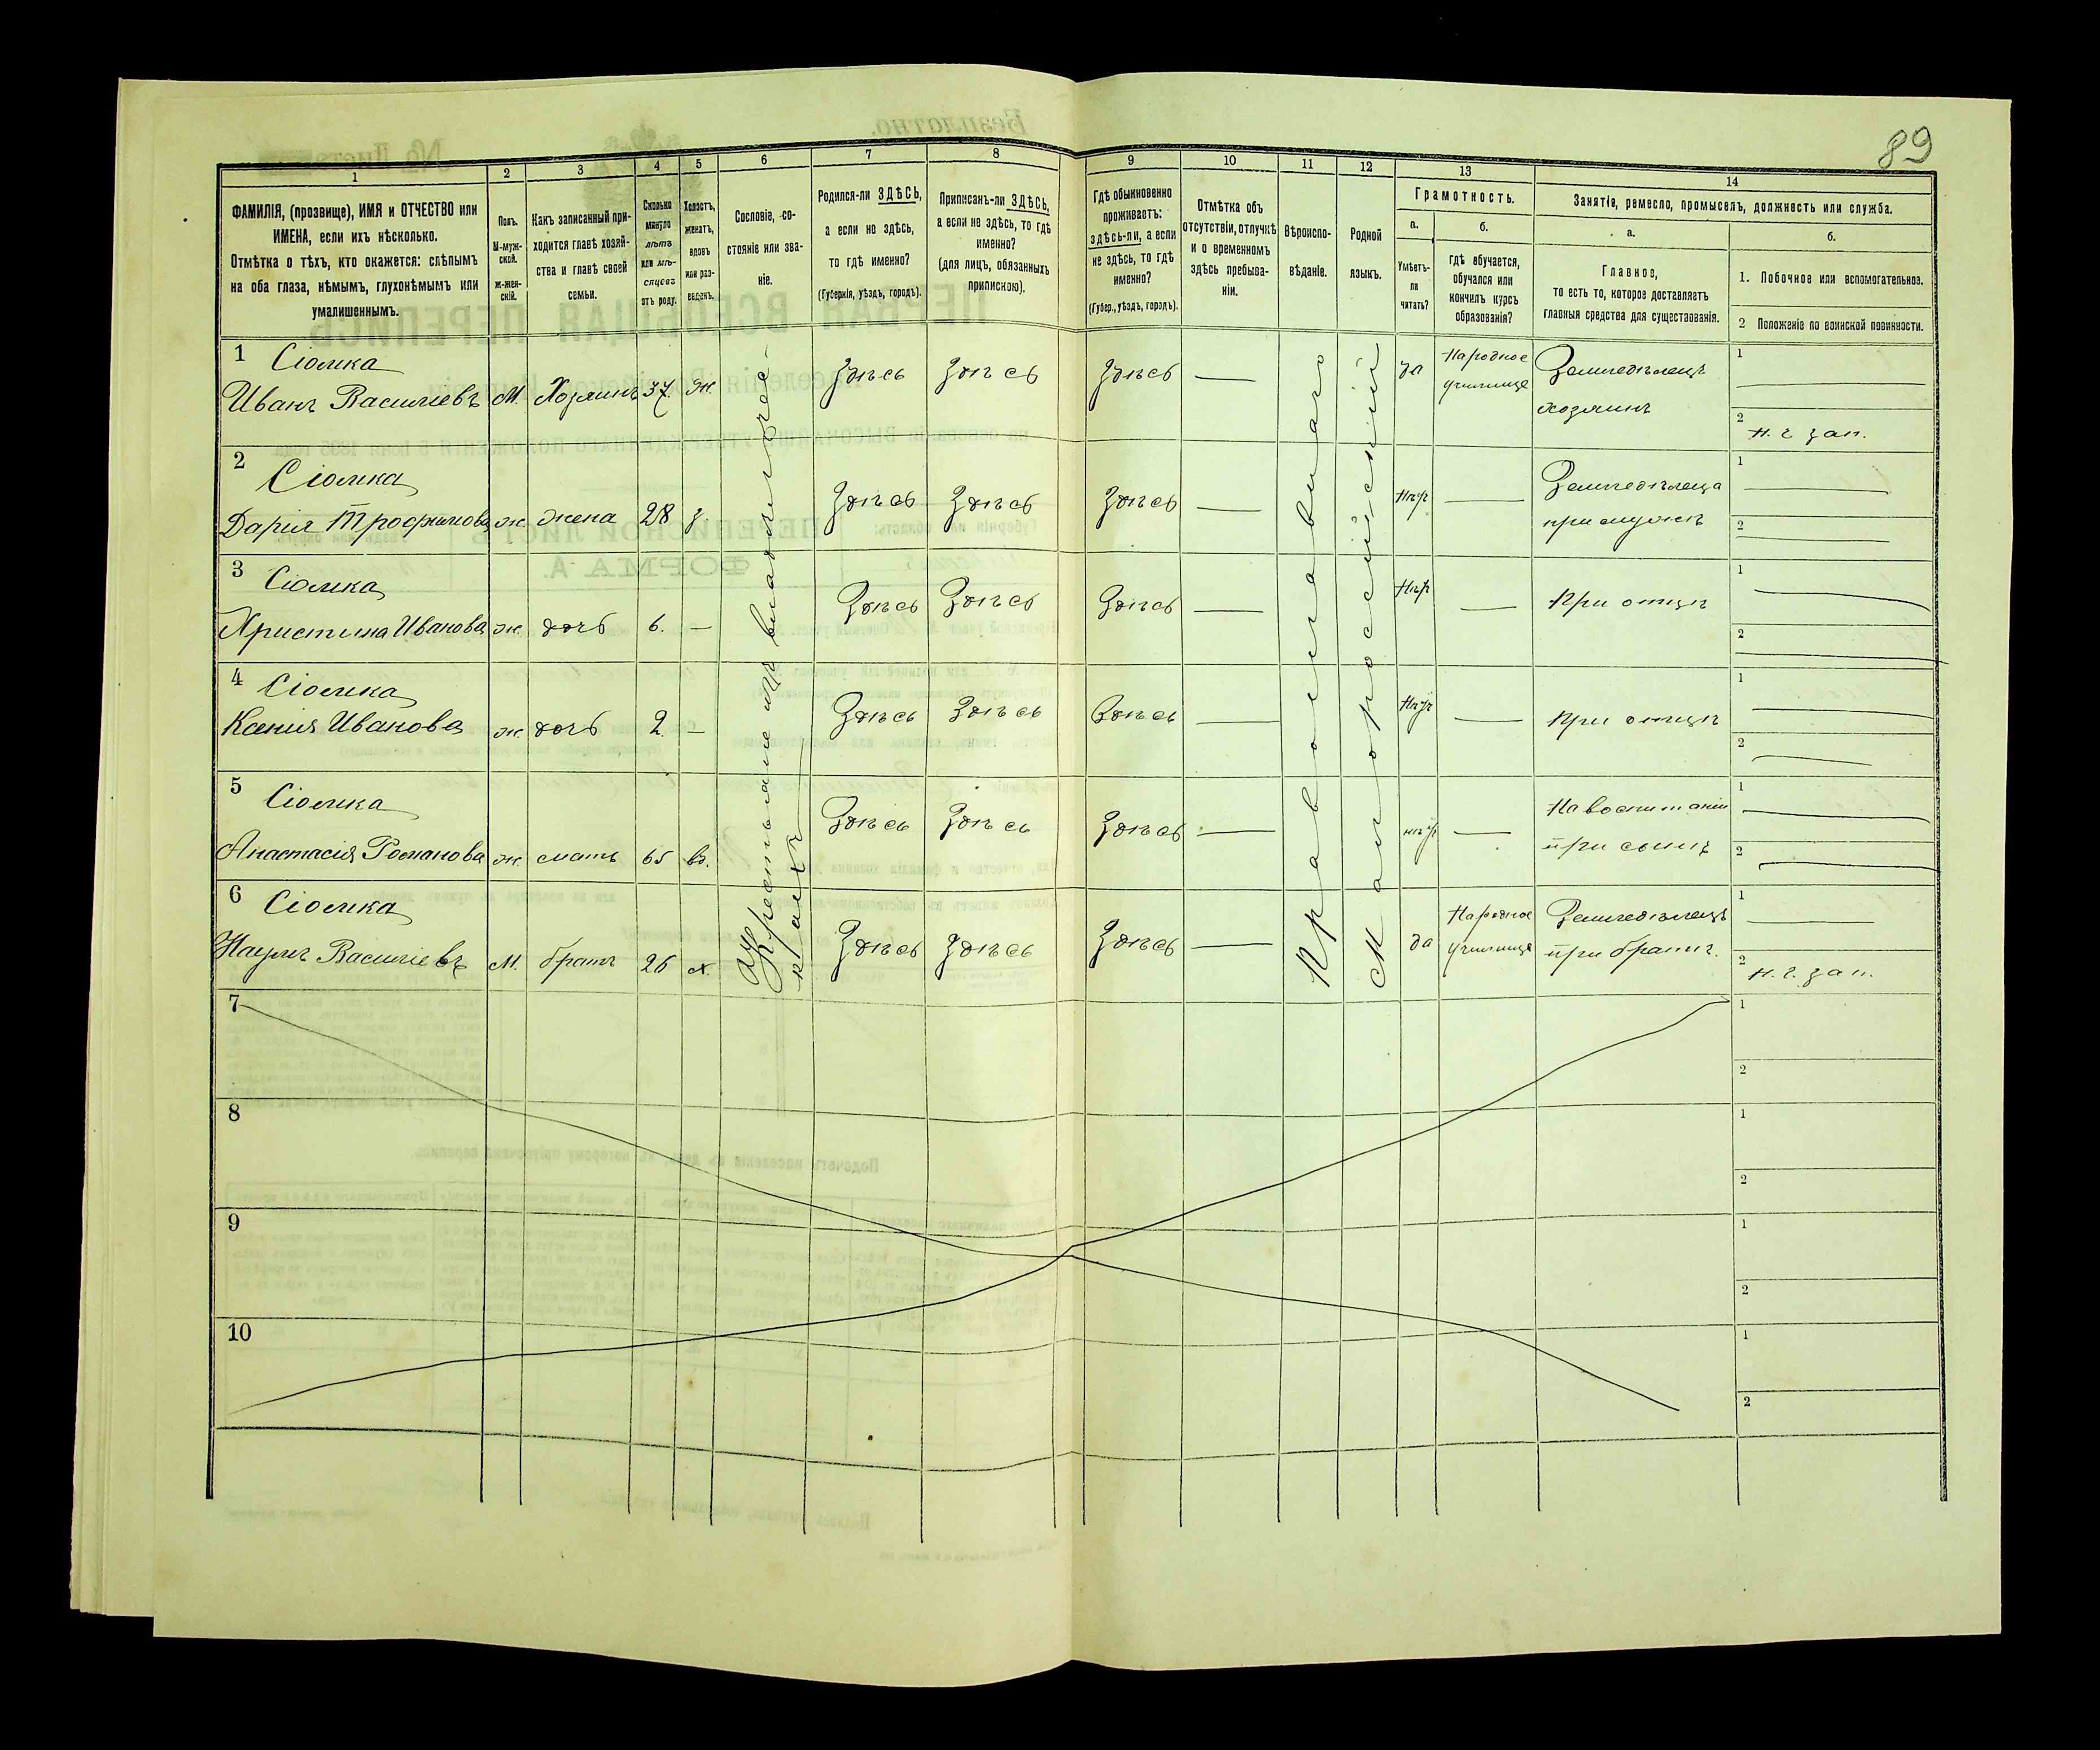 89
1 2 3 4 5 6 7 8 9 10 11 12 13 14
ФАМИЛІЯ, (прозвище), ИМЯ и ОТЧЕСТВО или
ИМЕНА, если ихъ нѣсколько.
Отмѣтка о тѣхъ, кто окажется: слѣпымъ
на оба глаза, нѣмымъ, глухонѣмымъ или
умалишеннымъ.
Полъ.
М-муж-
ской.
Ж-жен-
скій.
Какъ записанный при-
ходится главѣ хозяй-
ства и главѣ своей
семьи.
Сколько
минуло
лѣтъ
или мѣ-
сяцевъ
отъ роду.
Холостъ,
женатъ,
вдовъ
или раз-
веденъ.
Сословіе, со-
стояніе или зва-
ніе.
Родился-ли ЗДѢСЬ,
а если не здѣсь,
то гдѣ именно?
(Губернія, уѣздъ, городъ).
Приписанъ-ли ЗДѢСЬ,
а если не здѣсь, то гдѣ
именно?
(для лицъ, обязанныхъ
припискою).
Гдѣ обыкновенно
проживаетъ:
здѣсь-ли, а если
не здѣсь, то гдѣ
именно?
(Губер., уѣздъ, городъ).
Отмѣтка объ
отсутствіи, отлучкѣ
и о временномъ
здѣсь пребыва-
ніи.
Вѣроиспо-
вѣданіе.
Родной
языкъ.
Грамотность.
а.
Умѣетъ-
ли
читать?
б.
гдѣ обучается,
обучался или
кончилъ курсъ
образованія?
Занятіе, ремесло, промыселъ, должность или служба.
а.
Главное,
то есть то, которое доставляетъ
главныя средства для существованія.
б.
1. Побочное или вспомогательное.
2 Положеніе по воинской повинности.
1 Сіомка
Иванъ Васильевъ М. Хозяинъ 37. ж. Здѣсь Здѣсь Здѣсь — да Народное училище Земледѣлецъ хозяинъ
1
2 н. г. зап.
2 Сіомка
Дарія Трофимова ж. жена 28 з. Здѣсь Здѣсь Здѣсь — нѣтъ — Земледѣлица при мужѣ
1
2
3 Сіомка
Христина Иванова ж. дочь 6. — Здѣсь Здѣсь Здѣсь — нѣтъ — при отцѣ
1
2
4 Сіомка
Ксенія Иванова ж. дочь 2. — Здѣсь Здѣсь Здѣсь — нѣтъ — при отцѣ
1
2
5 Сіомка
Анастасія Романова ж. мать 65 в. Здѣсь Здѣсь Здѣсь — нѣтъ — На воспитаніи при сынѣ
1
2
6 Сіомка
Наумъ Васильевъ М. братъ 26 х. Здѣсь Здѣсь Здѣсь — да Народное училище Земледѣлецъ при братѣ.
1
2 н. г. зап.
Крестьяне изъ владѣльчес-
кихъ
Православнаго
Малороссійскій
7
1
2
8
1
2
9
1
2
10
1
2